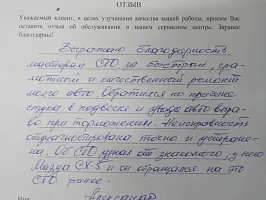 ОТЗЫВ
Уважаемый клиент, в целях улучшения качества нашей работы, просим Вас
оставить отзыв об обслуживании в нашем сервисном центре. Заранее
благодарны!
Выражаю благодарность
мастерам СТО за быстрый, гра-
мотный и качественный ремонт
моего авто. Обратился по причине
стука в подвеске и увода авто впра-
во при торможении. Неисправность
отдиагностирована точно и устране-
на. Об СТО узнал от знакомого, у него
Мазда CX-5 и он обращался на это
СТО ранее.
Имя: Александр